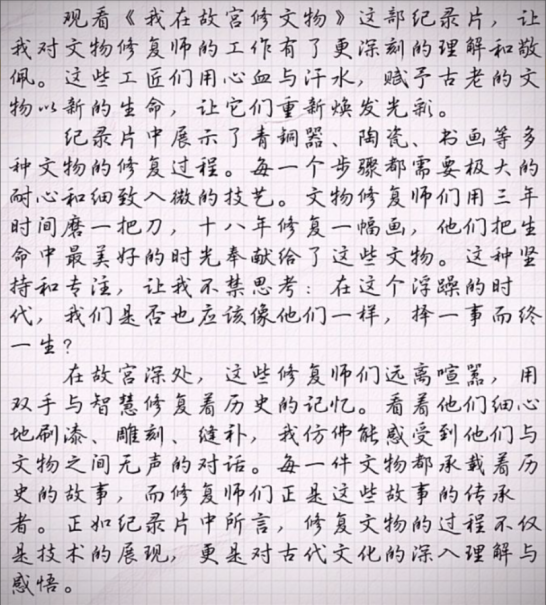 观看《我在故宫修文物》这部纪录片，让
我对文物修复师的工作有了更深刻的理解和敬
佩。这些工匠们用心血与汗水，赋予古老的文
物以新的生命，让它们重新焕发光彩。
纪录片中展示了青铜器、陶瓷、书画等多
种文物的修复过程。每一个步骤都需要极大的
耐心和细致入微的技艺。文物修复师们用三年
时间磨一把刀，十八年修复一幅画，他们把生
命中最美好的时光奉献给了这些文物。这种坚
持和专注，让我不禁思考：在这个浮躁的时
代，我们是否也应该像他们一样，择一事而终
一生？
在故宫深处，这些修复师们远离喧嚣，用
双手与智慧修复着历史的记忆。看着他们细心
地刷漆、雕刻、缝补，我仿佛能感受到他们与
文物之间无声的对话。每一件文物都承载着历
史的故事，而修复师们正是这些故事的传承
者。正如纪录片中所言，修复文物的过程不仅
是技术的展现，更是对古代文化的深入理解与
感悟。